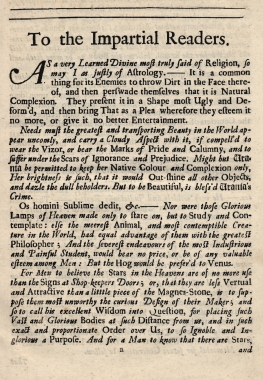 To the Impartial Readers.
AS a very Learned Divine most truly said of Religion, so
may I as justly of Astrology.—— It is a common
thing for its Enemies to throw Dirt in the Face there-
of, and then perswade themselves that it is Natural
Complexion. They present it in a Shape most Ugly and De-
form'd, and then bring That as a Plea wherefore they esteem it
no more, or give it no better Entertainment.
Needs must the greatest and transporting Beauty in the World ap-
pear uncomly, and carry a Cloudy Aspect with it, if compell'd to
wear the Vizor, or bear the Marks of Pride and Calumny, and to
suffer under the Scars of Ignorance and Prejudice. Might but Ura-
nia be permitted to keep her Native Colour and Complexion only,
Her brightness is such, that it would Out-shine all other Objects,
and dazle the dull beholders. But to be Beautiful, is bless'd Urania's
Crime.
Os homini Sublime dedit, &c.— Nor were those Glorious
Lamps of Heaven made only to stare on, but to Study and Con-
template: else the meerest Animal, and most contemptible Crea-
ture in the World, had equal advantage of them with the greatest
Philosopher; And the severest endeavours of the most Industrious
and Painful Student, would bear no price, or be of any valuable
esteem among Men: But the Hog would be prefer'd to Venus.
For Men to believe the Stars in the Heavens are of no more use
than the Signs at Shop-keepers Doors; or, that they are less Vertual
and Attractive than a little piece of the Magnes-Stone, is to sup-
pose them most unworthy the curious Design of their Maker; and
so to call his excellent Wisdom into Question, for placing such
Vast and Glorious Bodies at such Distance from us, and in such
exact and proportionate Order over Us, to so Ignoble and In-
glorious a Purpose. And for a Man to know that there are Stars,
a and